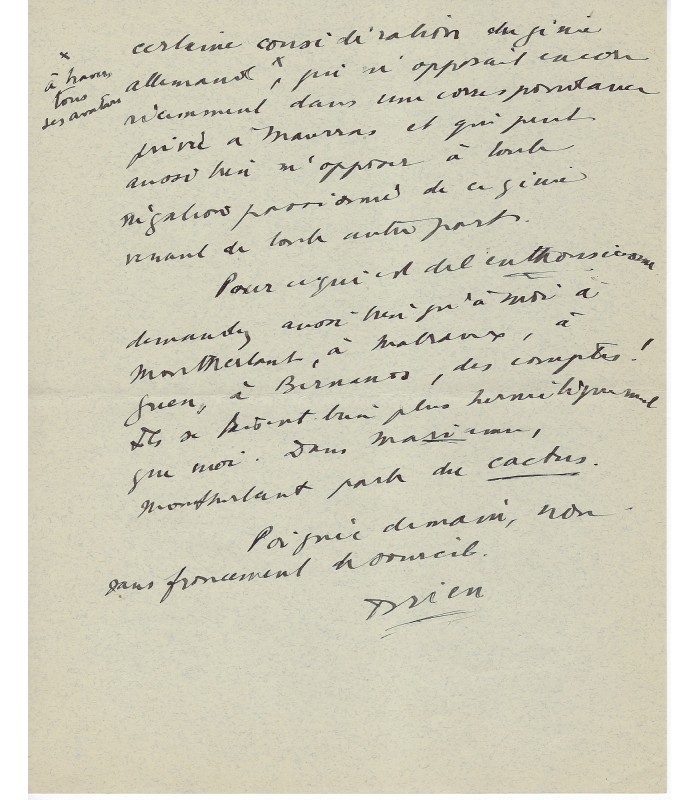 x
à travers
tous
ses avatars
certaine considération du génie
allemand x, qui m'opposait encore
récemment dans une correspondance
privée à Maurras et qui peut
aussi bien m'opposer à toute
négation passionnée de ce génie
venant de toute autre part.
Pour ce qui est de l'enthousiasme
demandez aussi bien qu'à moi à
Montherlant, à Malraux, à
à Bernanos, des comptes!
Ils se bien plus hermétiquement
que moi. Dans
Montherlant parle du cactus.
Poignée de main, non
sans froncement de sourcil.
Drieu